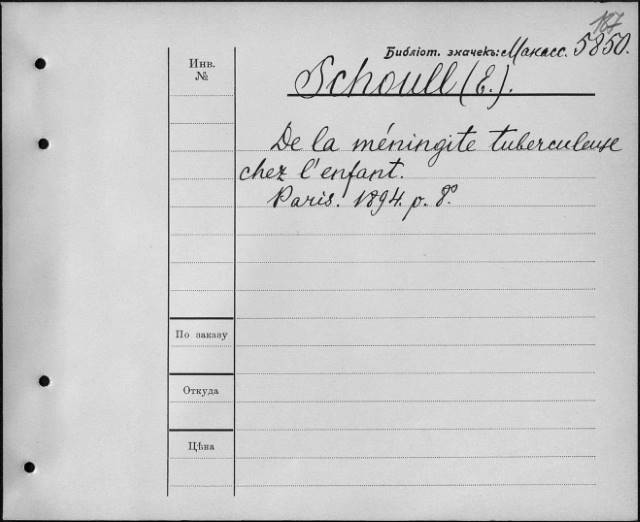 167
Библіот. значекъ: Манасс. 5850.
Инв.
№
Schoull (E.).
De la méningite tuberculeuse
chez l'enfant.
Paris. 1894. p. 8º.
По заказу
Откуда
Цѣна